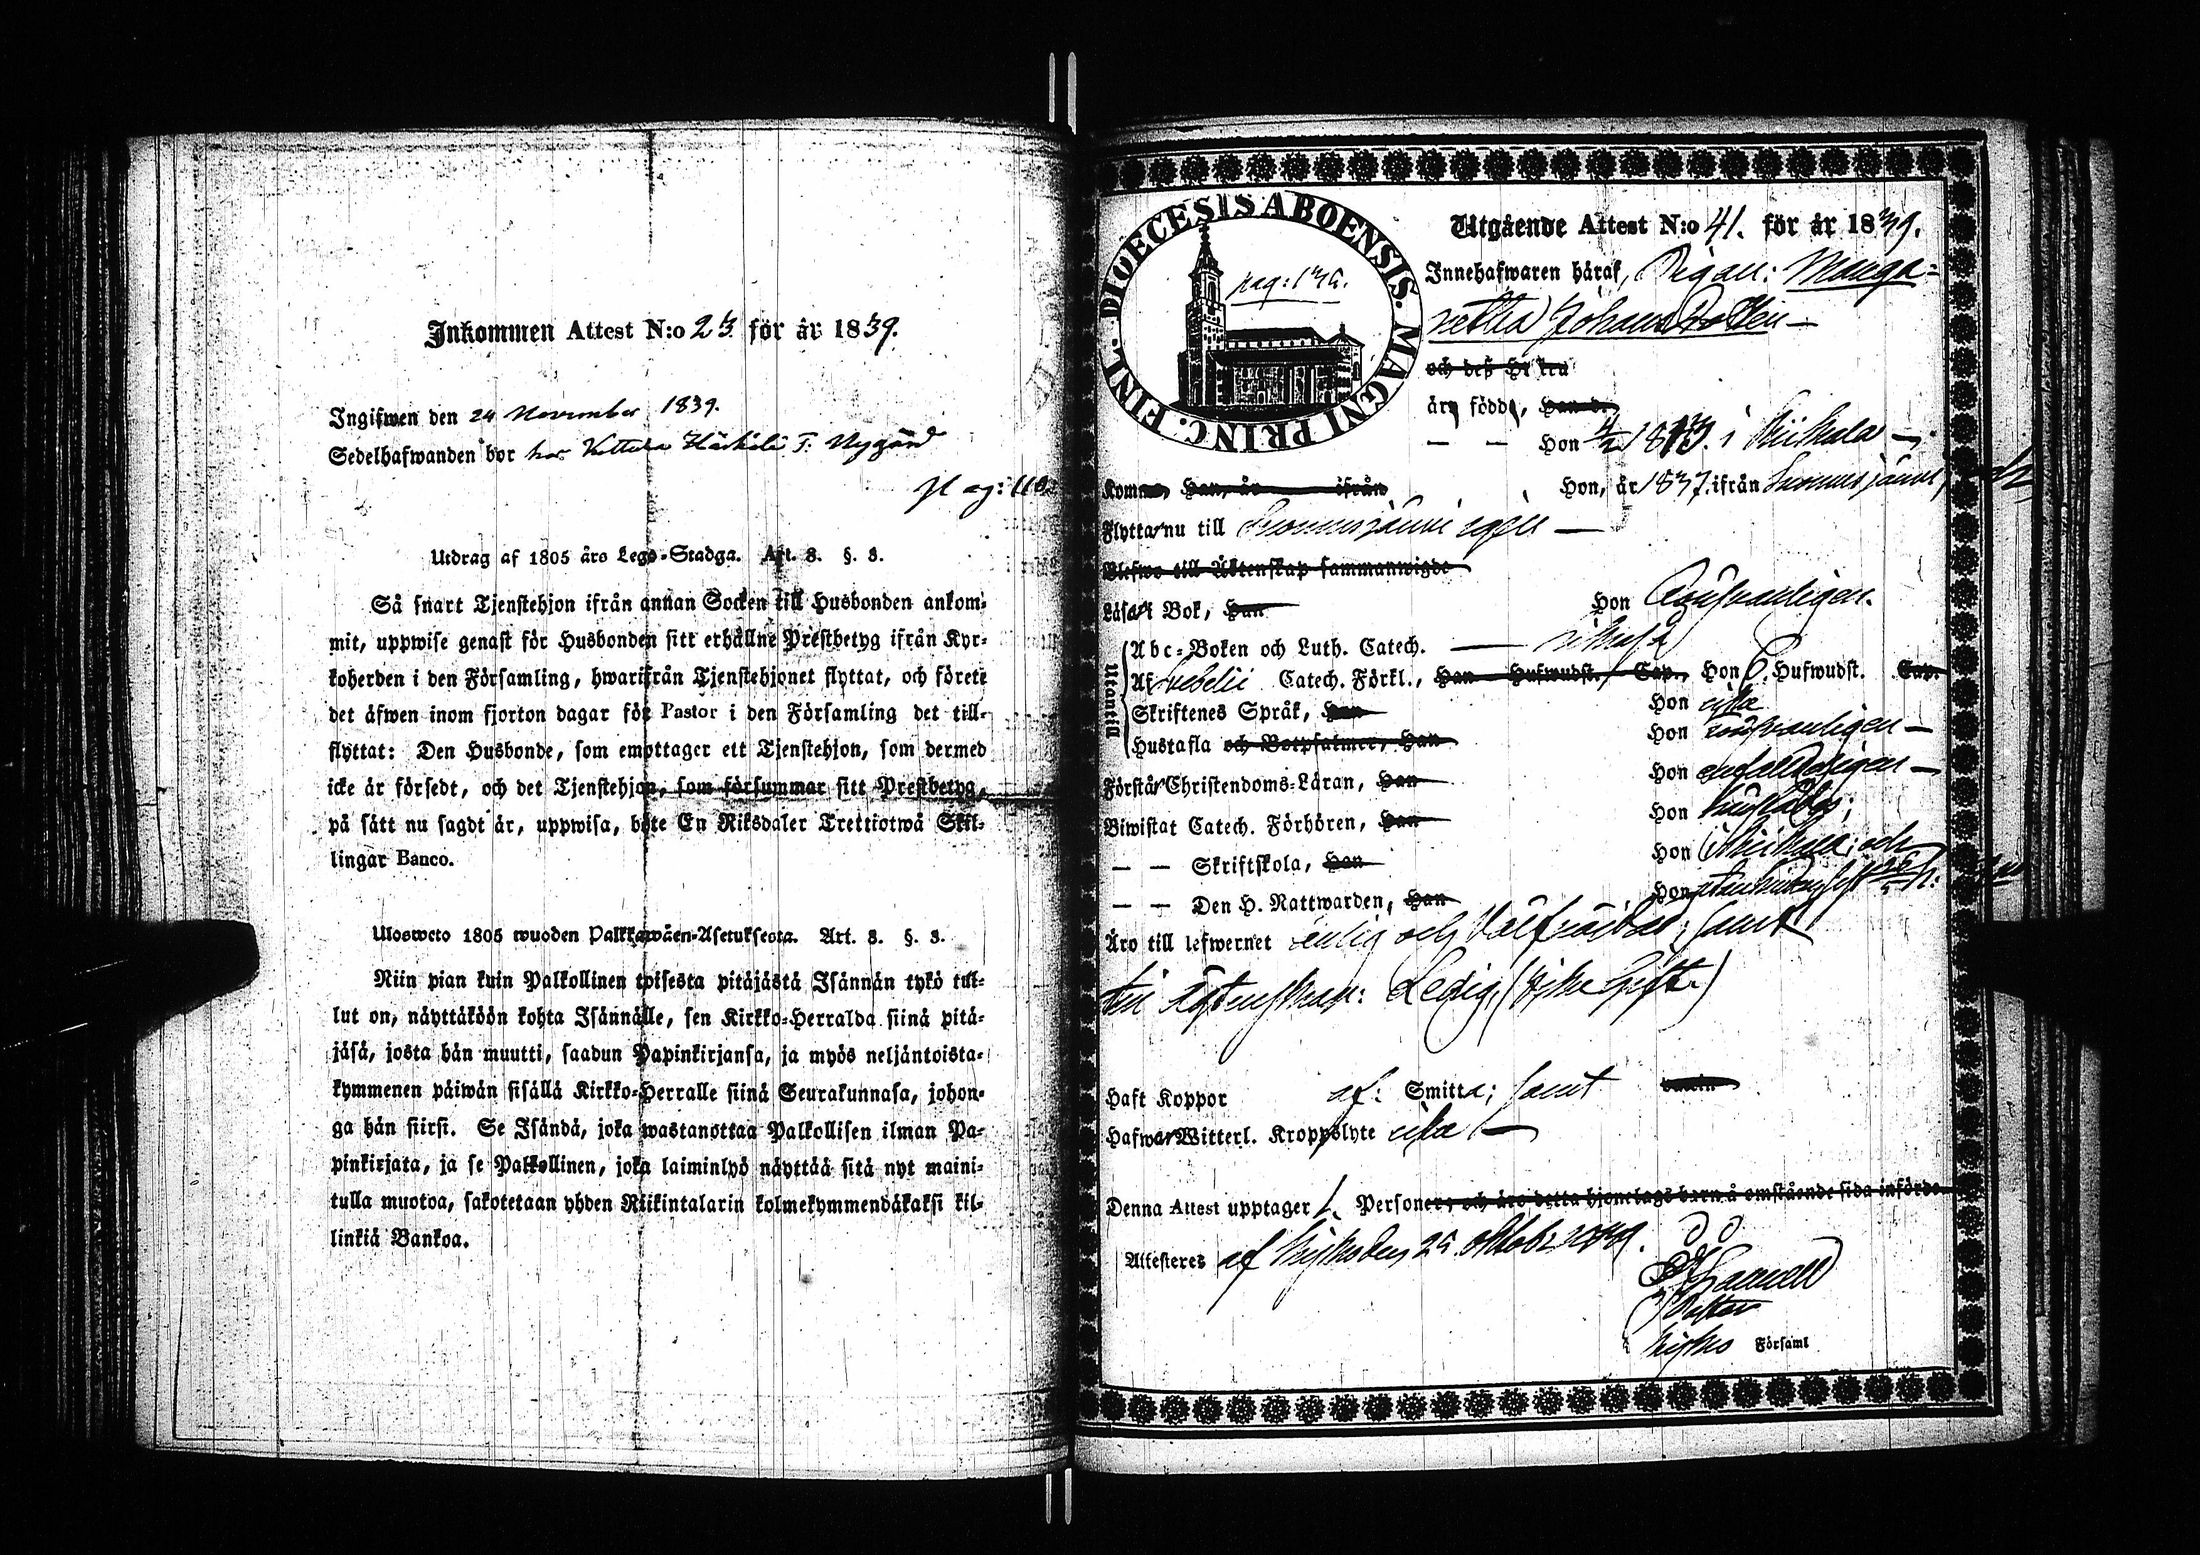 Inkommen Attest N:o 23 för år 1839.
Ingifwen den 24 November 1839.
Sedelhafwanden bor hos Nygård
pag: 110
Utdrag af 1805 års Lego-Stadga. Art. 8. §. 3.
Så snart Tjenstehjon ifrån annan Socken till Husbonden ankom-
mit, uppwise genast för Husbonden sitt erhållne Prestbetyg ifrån Kyr-
koherden i den Församling, hwarifrån Tjenstehjonet flyttat, och förete
det äfwen inom fjorton dagar för Pastor i den Församling det till-
flyttat: Den Husbonde, som emottager ett Tjenstehjon, som dermed
icke är försedt, och det Tjenstehjon, som försummar sitt Prestbetyg,
på sätt nu sagdt är, uppwisa, böte En Riksdaler Trettiotwå Skil-
lingar Banco.
Ulosweto 1805 wuoden Palkkawäen-Asetuksesta. Art. 8. §. 3.
Niin pian kuin Palkollinen toisesta pitäjästä Isännän tykö tul-
lut on, näyttäköön kohta Isännälle, sen Kirkko-Herralda siinä pitä-
jäsä, josta hän muutti, saadun Papinkirjansa, ja myös neljäntoista-
kymmenen päiwän sisällä Kirkko-Herralle siinä Seurakunnasa, johon-
ga hän siirsi. Se Isändä, joka wastanottaa Palkollisen ilman Pa-
pinkirjata, ja se Palkollinen, joka laiminlyö näyttää sitä nyt maini-
tulla muotoa, sakotetaan yhden Riikintalarin kolmekymmendäkaksi kil-
linkiä Bankoa.
DIOECESIS ABOENSIS. MAGNI PRINC. FINL.
pag: 135.
Utgående Attest N:o 41. för år 1839.
Innehafwaren häraf, Pigan: Marga=
retha Johansdotter —
och deß Hustru
äro född, Han d.
— — Hon 4/2 1813. i Kiikala —
Kommo, Han, år ifrån Hon, år 1837. ifrån Somusjärvi,
Flytta nu till Somusjärvi igen —
Blefwo till Äktenskap sammanwigde
Läsa i Bok, Han Hon Försvarligen.
Abc-Boken och Luth. Catech. —
Utantill
Af Svebelii Catech. Förkl., Han Hufwudst. Cap., Hon 6. Hufwudst. Cap.
Skriftenes Språk, Han Hon icke
Hustafla och Botpsalmer, Han Hon försvarligen —
Förstår Christendoms-Läran, Han Hon enfaldeligen —
Biwistat Catech. Förhören, Han Hon
— — Skriftskola, Han Hon i Kiikala; och
— — Den H. Nattwarden, Han Hon
Äro till lefwernet ärlig och välfrejdad; samt
till Äktenskap: Ledig, (Icke Gift.)
Haft Koppor af: Smitta; samt vaccin
Hafwa Witterl. Kroppslyte icke —
Denna Attest upptager 1. Personer, och äro detta hjonelags barn å omstående sida införde.
Attesteres af Kisko den 25 Oktober 1839.
Kisko Församl